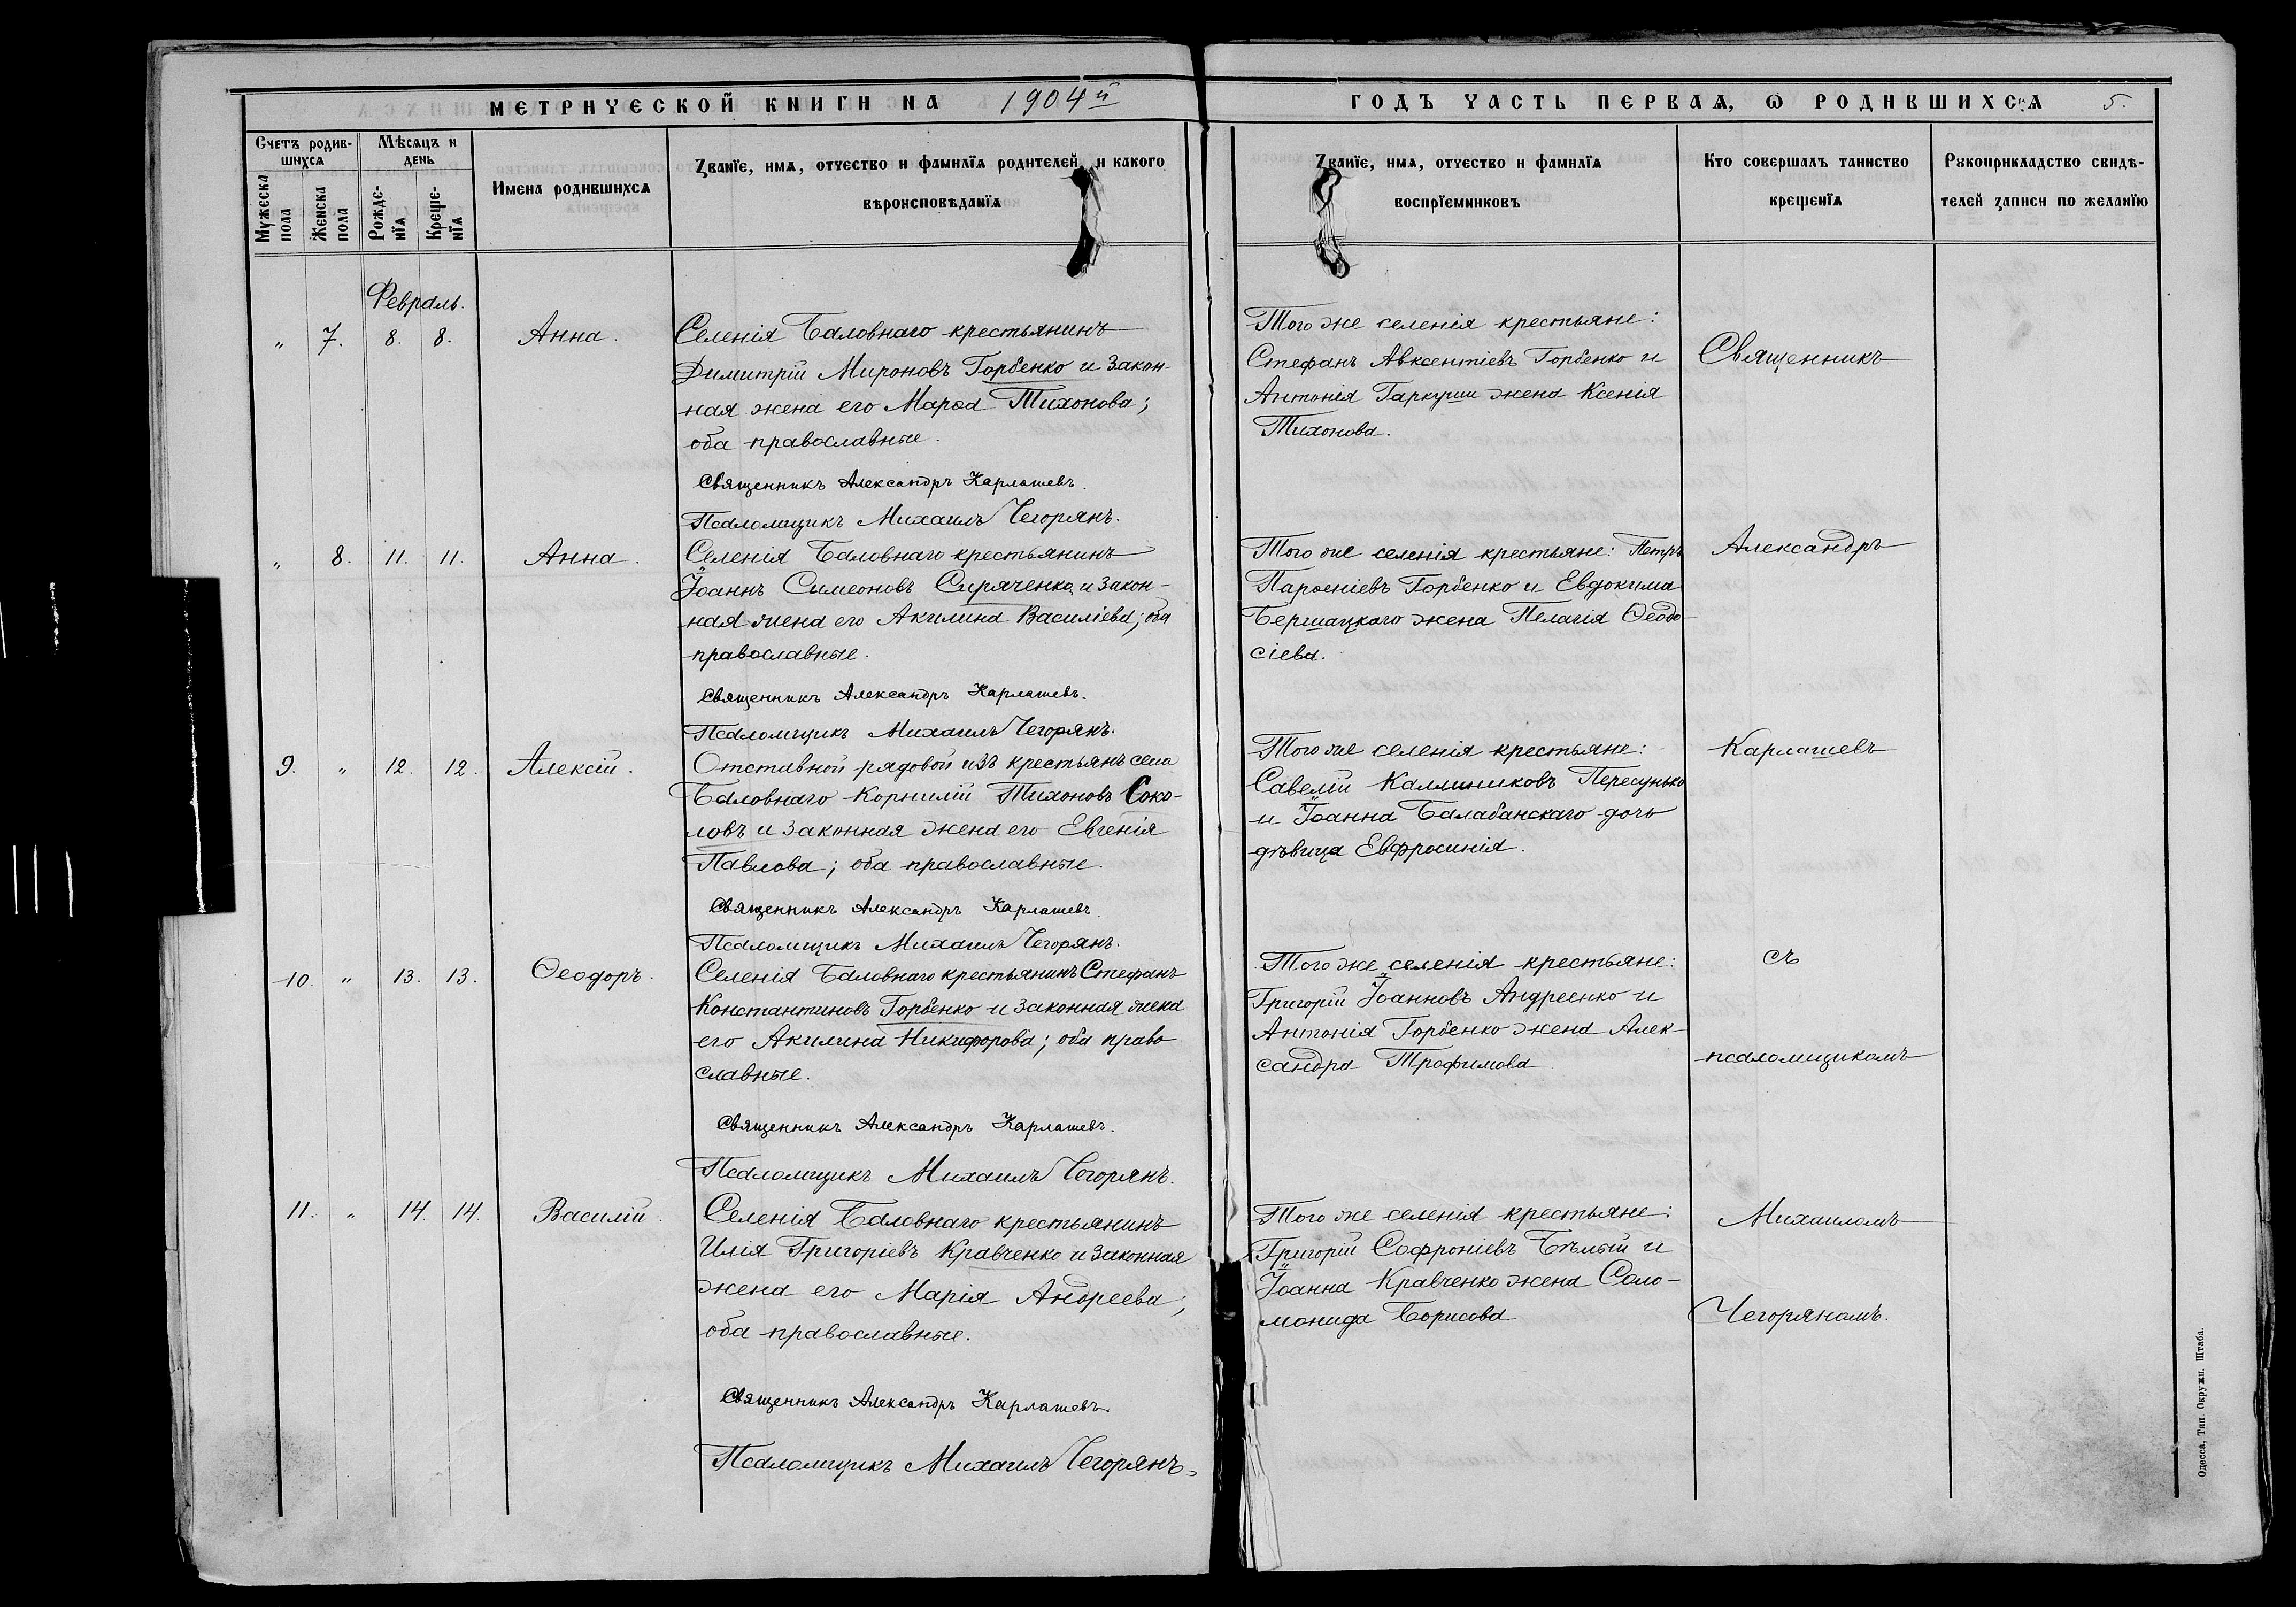 МЕТРИЧЕСКОЙ КНИГИ НА 1904й ГОДЪ ЧАСТЬ ПЕРВАЯ, Ѡ РОДИВШИХСЯ 5.
Счетъ родив-
шихся
Мѣсяцъ и
день
Мужеска
пола
Женска
пола
Рожде-
нїя
Креще-
нїя
Имена родившихся
Званїе, имя, отчество и фамилїя родителей и какого
вѣроисповѣданїя
Званїе, имя, отчество и фамилїя
воспрїемниковъ
Кто совершалъ таинство
крещенїя
Рукоприкладство свидѣ-
телей записи по желанїю
Февраль.
" 7. 8. 8. Анна.
Селенія Баловнаго крестьянинъ
Димитрій Мироновъ Горбенко и закон-
ная жена его Марѳа Тихонова;
оба православные.
Священникъ Александръ Карлашевъ.
Псаломщикъ Михаилъ Чегорянъ.
Того же селенія крестьяне:
Стефанъ Авксентіевъ Горбенко и
Антонія Гаркуши жена Ксенія
Тихонова.
Священникъ
" 8. 11. 11. Анна.
Селенія Баловнаго крестьянинъ
Іоаннъ Симеоновъ Сиряченко и закон-
ная жена его Акилина Василіева; оба
православные.
Священникъ Александръ Карлашевъ.
Псаломщикъ Михаилъ Чегорянъ.
Того же селенія крестьяне: Петръ
Парѳеніевъ Горбенко и Евдокима
Бершацкаго жена Пелагія Ѳеодо-
сіева.
Александръ
9. " 12. 12. Алексій.
Отставной рядовой изъ крестьянъ села
Баловнаго Корнилій Тихоновъ Соко-
ловъ и законная жена его Евгенія
Павлова; оба православные.
Священникъ Александръ Карлашевъ.
Псаломщикъ Михаилъ Чегорянъ.
Того же селенія крестьяне:
Савелій Каллиниковъ Пересунько
и Іоанна Балабанскаго дочь
дѣвица Евфросинія.
Карлашевъ
10. " 13. 13. Ѳеодоръ.
Селенія Баловнаго крестьянинъ Стефанъ
Константиновъ Горбенко и законная жена
его Акилина Никифорова; оба право
славные.
Священникъ Александръ Карлашевъ.
Псаломщикъ Михаилъ Чегорянъ.
Того же селенія крестьяне:
Григорій Іоанновъ Андреенко и
Антонія Горбенко жена Алек-
сандра Трофимова
съ
псаломщикомъ
11. " 14. 14. Василій.
Селенія Баловнаго крестьянинъ
Илія Григоріевъ Кравченко и законная
жена его Марія Андреева;
оба православные.
Священникъ Александръ Карлашевъ.
Псаломщикъ Михаилъ Чегорянъ.
Того же селенія крестьяне:
Григорій Софроніевъ Бѣлый и
Іоанна Кравченко жена Соло-
монида Борисова.
Михаиломъ
Чегоряномъ.
Одесса, Тип. Окружн. Штаба.